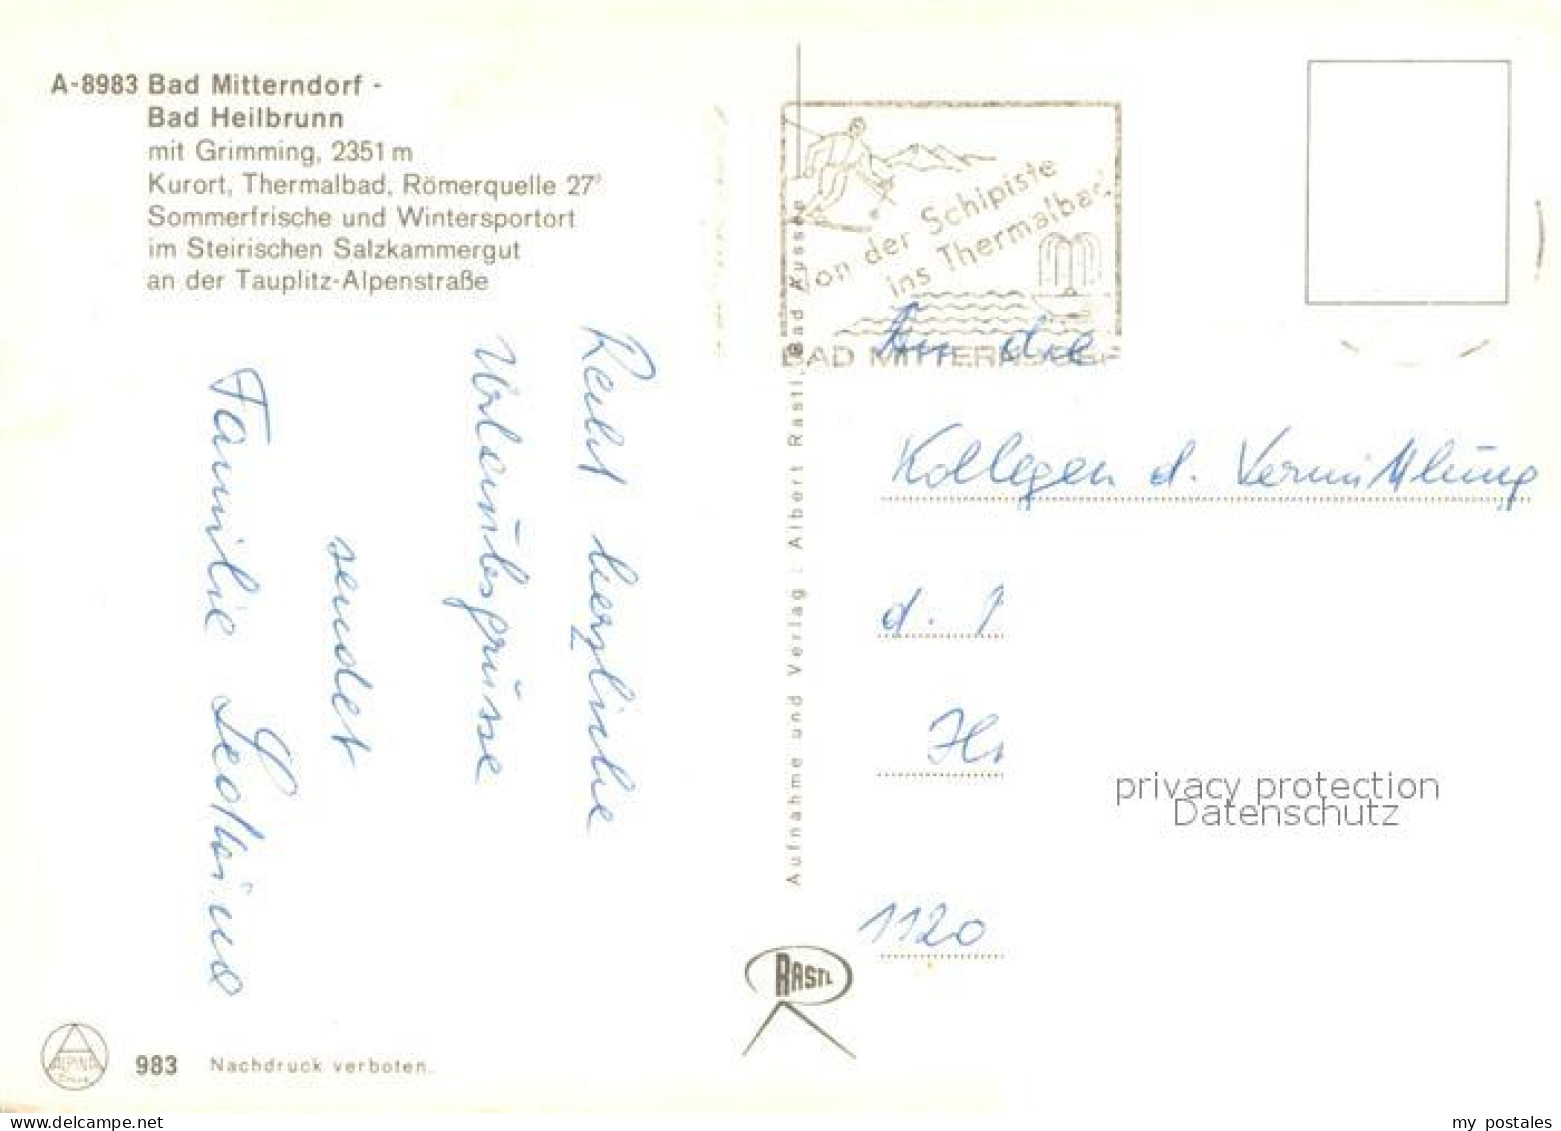 A-8983 Bad Mitterndorf -
Bad Heilbrunn
mit Grimming, 2351 m
Kurort, Thermalbad, Römerquelle 27°
Sommerfrische und Wintersportort
im Steirischen Salzkammergut
an der Tauplitz-Alpenstraße
Recht herzliche
Urlaubsgrüsse
sendet
Familie
983 Nachdruck verboten.
ALPINA
Aufnahme und Verlag: Albert Rastl, Bad Aussee
RASTL
Von der Schipiste
ins Thermalbad
BAD MITTERNDORF
An die
Kollegen d. Vermittlung
d.
1120
privacy protection
Datenschutz
my postales